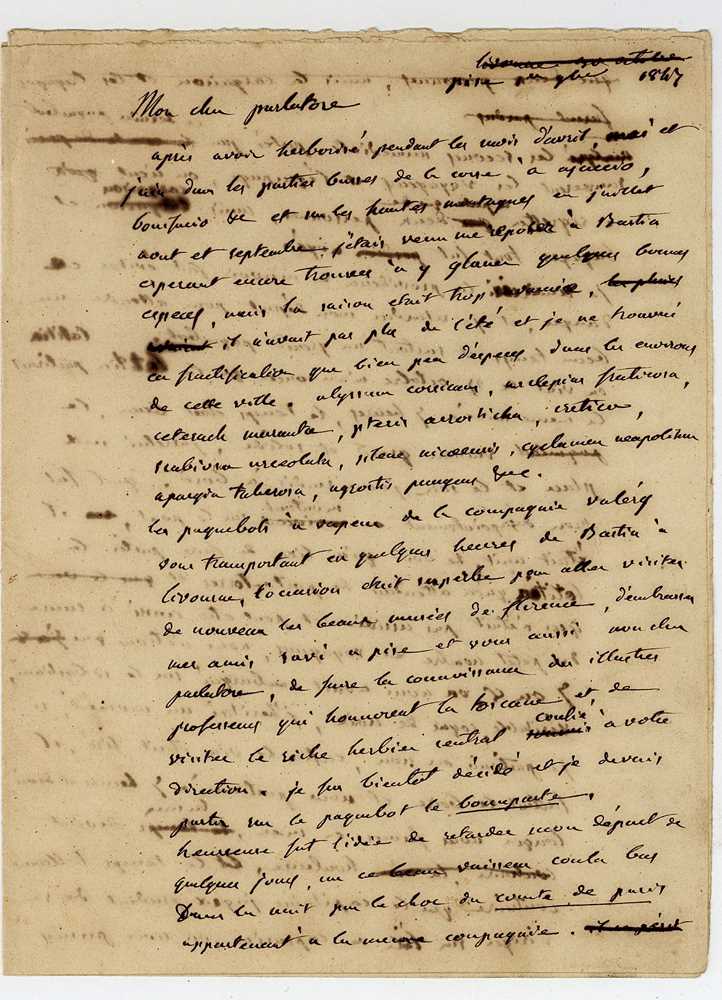 livourne 30 octobre
pise 1er 9bre 1847
Mon cher parlatore
après avoir herborisé pendant les mois d'avril, mai et
juin dans les parties basses de la corse à ajaccio,
bonifacio &c et sur les hautes montagnes en juillet
aout et septembre. j'étais venu me reposer à Bastia
esperant encore trouver à y glaner quelques bonnes
especes, mais la saison etait trop les pluies
il n'avait pas plu de l'été et je ne trouvai
en fructification que bien peu d'especes dans les environs
de cette ville. alyssum corsicum, asclepias fruticosa,
ceterach marantae, pteris acrosticha, cretica,
scabiosa urceolata, silene nicaeensis, cyclamen neapolitanum
apargia tuberosa, agrostis pungens &c.
les paquebots à vapeur de la compagnie valéry
vous transportant en quelques heures de Bastia à
livourne, l'occasion était superbe pour aller visiter
de nouveau les beaux musées de florence, d'embrasser
mes amis savi à pise et vous aussi mon cher
parlatore, de faire la connaissance des illustres
professeurs qui honnorent la toscane et de
visiter le riche herbier central confié à votre
direction. je fus bientôt décidé et je devais
partir sur le paquebot le bonaparte.
heureuse fut l'idée de retarder mon départ de
quelques jours, car ce beau vaisseau coula bas
Dans la nuit par le choc du comte de paris
appartenant à la même compagnie. il a péri